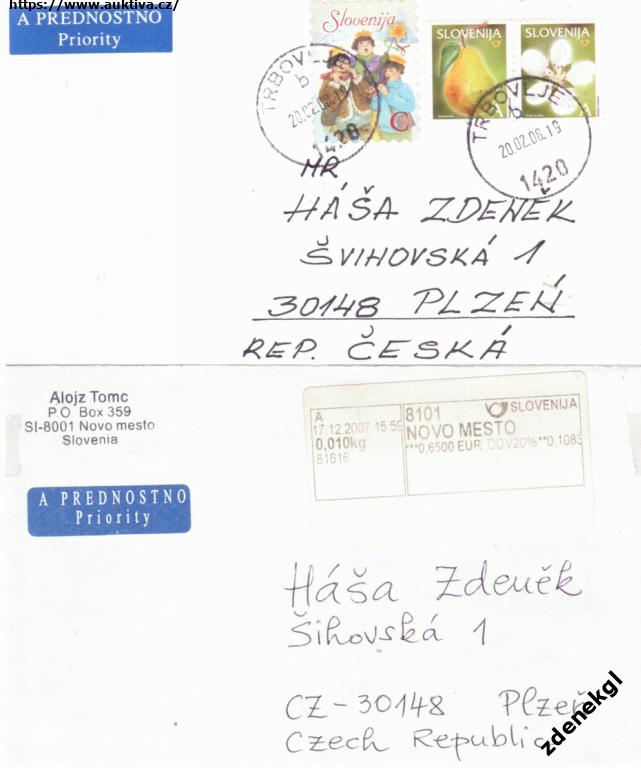 https://www.auktiva.cz/
A PREDNOSTNO
Priority
Slovenija
C
SLOVENIJA
A
SLOVENIJA
TRBOVLJE
b
20.02.06.19
1420
TRBOVLJE
b
20.02.06.19
1420
MR
HÁŠA ZDENĚK
ŠVIHOVSKÁ 1
30148 PLZEŇ
REP. ČESKÁ
Alojz Tomc
P.O. Box 359
SI-8001 Novo mesto
Slovenia
A PREDNOSTNO
Priority
A
17.12.2007 15:59
0,010kg
81616
8101 SLOVENIJA
NOVO MESTO
***0,6500 EUR DDV20%**0.1083
Háša Zdeněk
Šihovská 1
CZ-30148 Plzeň
Czech Republic
zdenekgl